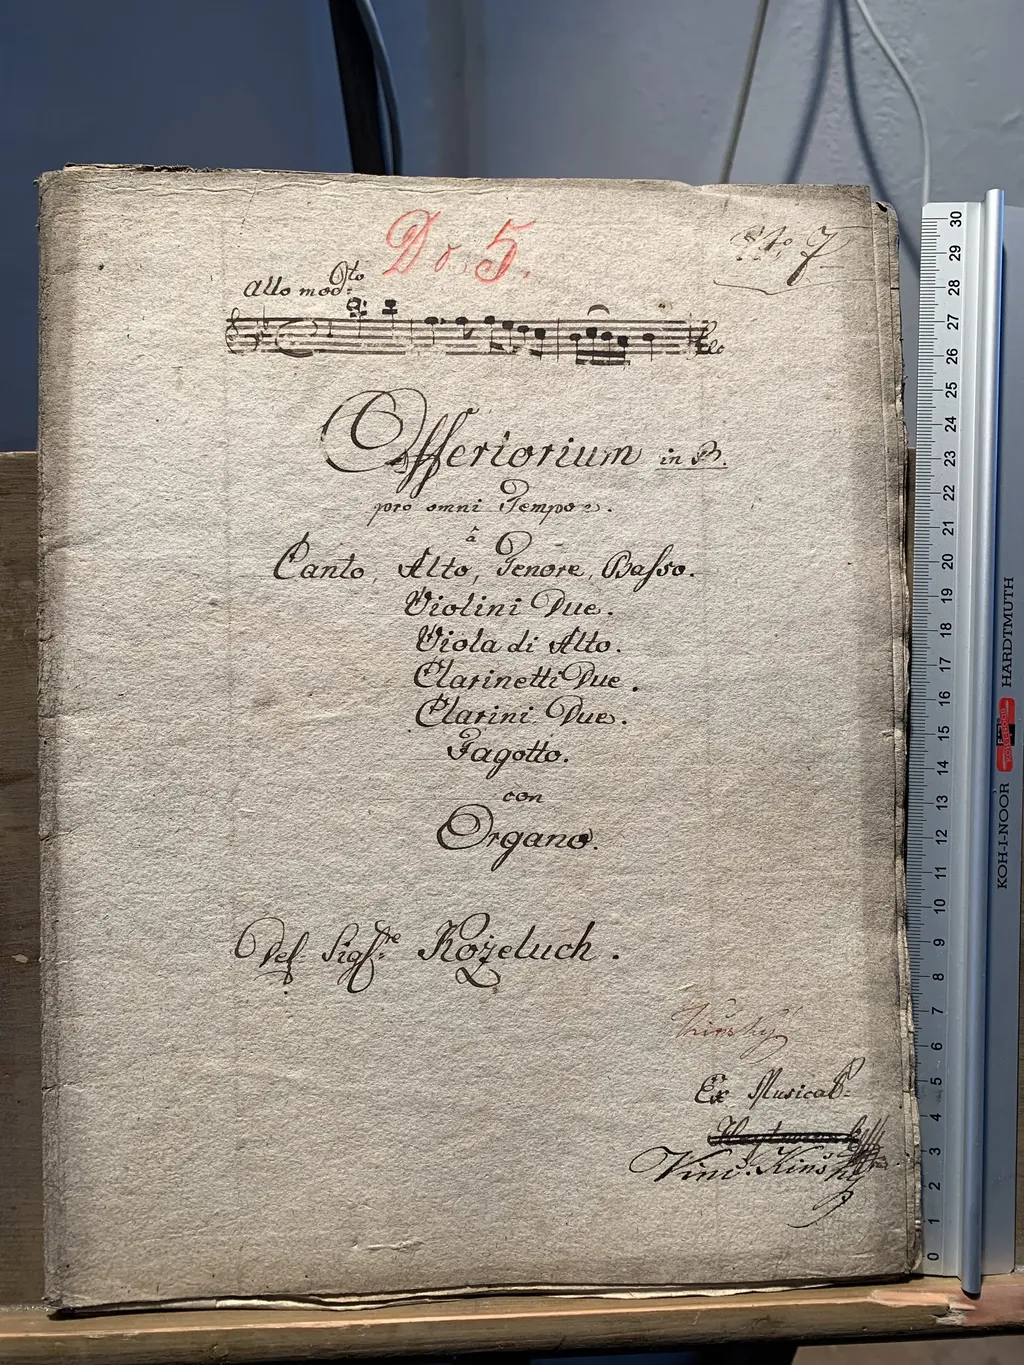 Do. 5.
No 7
Allo modto
Offertorium in B.
pro omni Tempore.
â
Canto, Alto, Tenore, Basso.
Violini Due.
Viola di Alto.
Clarinetti Due.
Clarini Due.
Fagotto.
con
Organo.
Del Sigre Koželuch.
Kinsky
Ex Musical:
Vinc: Kinsky
30
29
28
27
26
25
24
23
22
21
20
19
18
17
16
15
14
13
12
11
10
9
8
7
6
5
4
3
2
1
0
KOH-I-NOOR HARDTMUTH